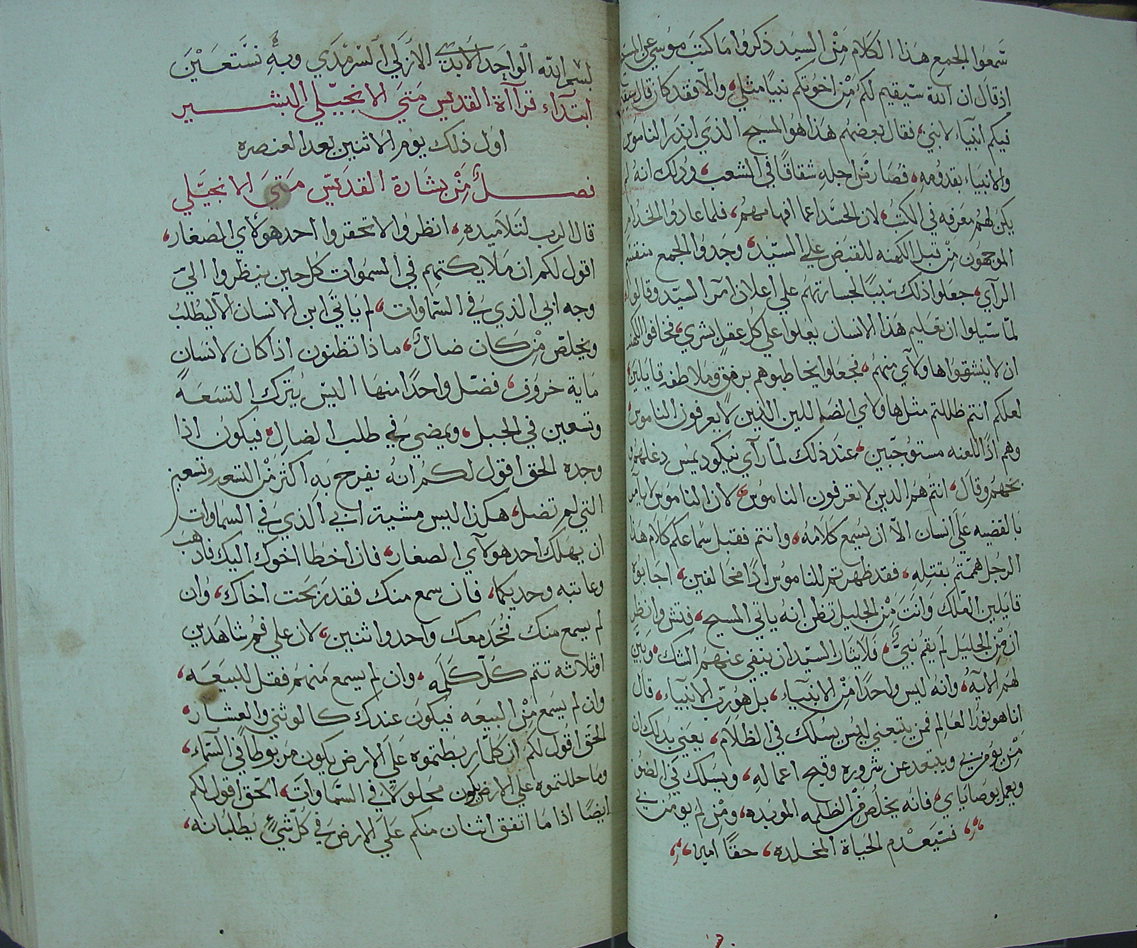 سمعوا الجمع هذا الكلام من السيد ذكروا ما كتب موسي عن المسيح
اذ قال ان الله سيقيم لكم من اخوتكم نبيا مثلي، والا فقد كان قال سيقيم
فيكم انبياء لا نبي، فقال بعضهم هذا هو المسيح الذي انذر الناموس
والانبياء بقدومه، فصار من اجله شقاقا في الشعب، وذلك انه لم
يكن لهم معرفه في الكتب لان الحسد اعما افهامهم، فلما عادوا الخدام
الموجهون من قبل الكهنه للقبض علي السيد، وجدوا الجمع منقسم
الرآي، جعلوا ذلك سببا لخسارتهم علي اعلان امر السيد وقالوا
لما سيلوا ان تعليم هذا الانسان يعلوا علي كل عقل بشري، فخافوا الكهنه
ان لا ينشقوا هاولاي منهم، فجعلوا يخاطبوهم برفق وملاطفه قايلين
لعلكم انتم ظللتم مثل هاولاي الضالين الذين لا يعرفون الناموس
وهم اذا اللعنه مستوجبين، عند ذلك لما رآي نيكوديمس دغلهم
بخهم وقال، انتم هم الذين لا تعرفون الناموس، لان الناموس ما يآمر
بالقضيه علي انسان الا ان يسمع كلامه، وانتم فقبل سماعكم كلام هذا
الرجل هممتم بقتله، فقد ظهرتم للناموس اذا مخالفين، اجابوه
قايلين العلك وانت من الجليل تظن انه ياتي المسيح، فتش وانظر
ان من الجليل لم يقم نبي، فلايثار السيد ان ينفي عنهم الشك، ويبين
لهم الايه، وانه ليس واحدا من الانبياء، بل هو رب الانبياء، قال
انا هو نور العالم فمن يتبعني ليس يسلك في الظلام، يعني بذلك ان
من يومن بي ويبتعد عن شروره وقبيح اعماله، ويسلك في الضو
ويعمل بوصاياي، فانه يخلص من الظلمه الموبده، ومن لم يومن بي
يستعدم الحياة المخلده، حقا امين
بسم الله الواحد الابدي الازلي السرمدي وبه نستعين
ابتداء قرآاة القديس متي الانجيلي المبشير
اول ذلك يوم الاثنين بعد العنصره
فصل من بشارة القديس متي الانجيلي
قال الرب لتلاميذه، انظروا لا تحقروا احد هولاي الصغار،
اقول لكم ان ملايكتهم في السموات كل حين ينظروا الي
وجه ابي الذي في السماوات، لم ياتي ابن الانسان الا ليطلب
ويخلص من كان ضال، ماذا تظنون اذا كان لانسان
ماية خروف، فضل واحدا منها اليس يترك التسعة
وتسعين في الجبل، ويمضي في طلب الضال، فيكون اذا
وجده الحق اقول لكم انه يفرح به اكثر من التسعه وتسعين
التي لم تضل، هكذا ليس مشية ابي الذي في السماوات
ان يهلك احد هولاي الصغار، فان اخطا اخوك اليك فاذهب
وعاتبه وحديكما، فان سمع منك فقد ربحت اخاك، وان
لم يسمع منك فخد معك واحد او اثنين، لان علي فم شاهدين
او ثلاثه تتم كل كلمه، وان لم يسمع منهم فقل للبيعه،
وان لم يسمع من البيعه فيكون عندك كالوثني والعشار،
الحق اقول لكم ان كلما ربطتموه علي الارض يكون مربوطا في السماء،
وما حللتموه علي الارض يكون محلولا في السماوات، الحق اقول لكم
ايضا اذا ما اتفق اثنان منكم علي الارض في كل شي يطلبانه،